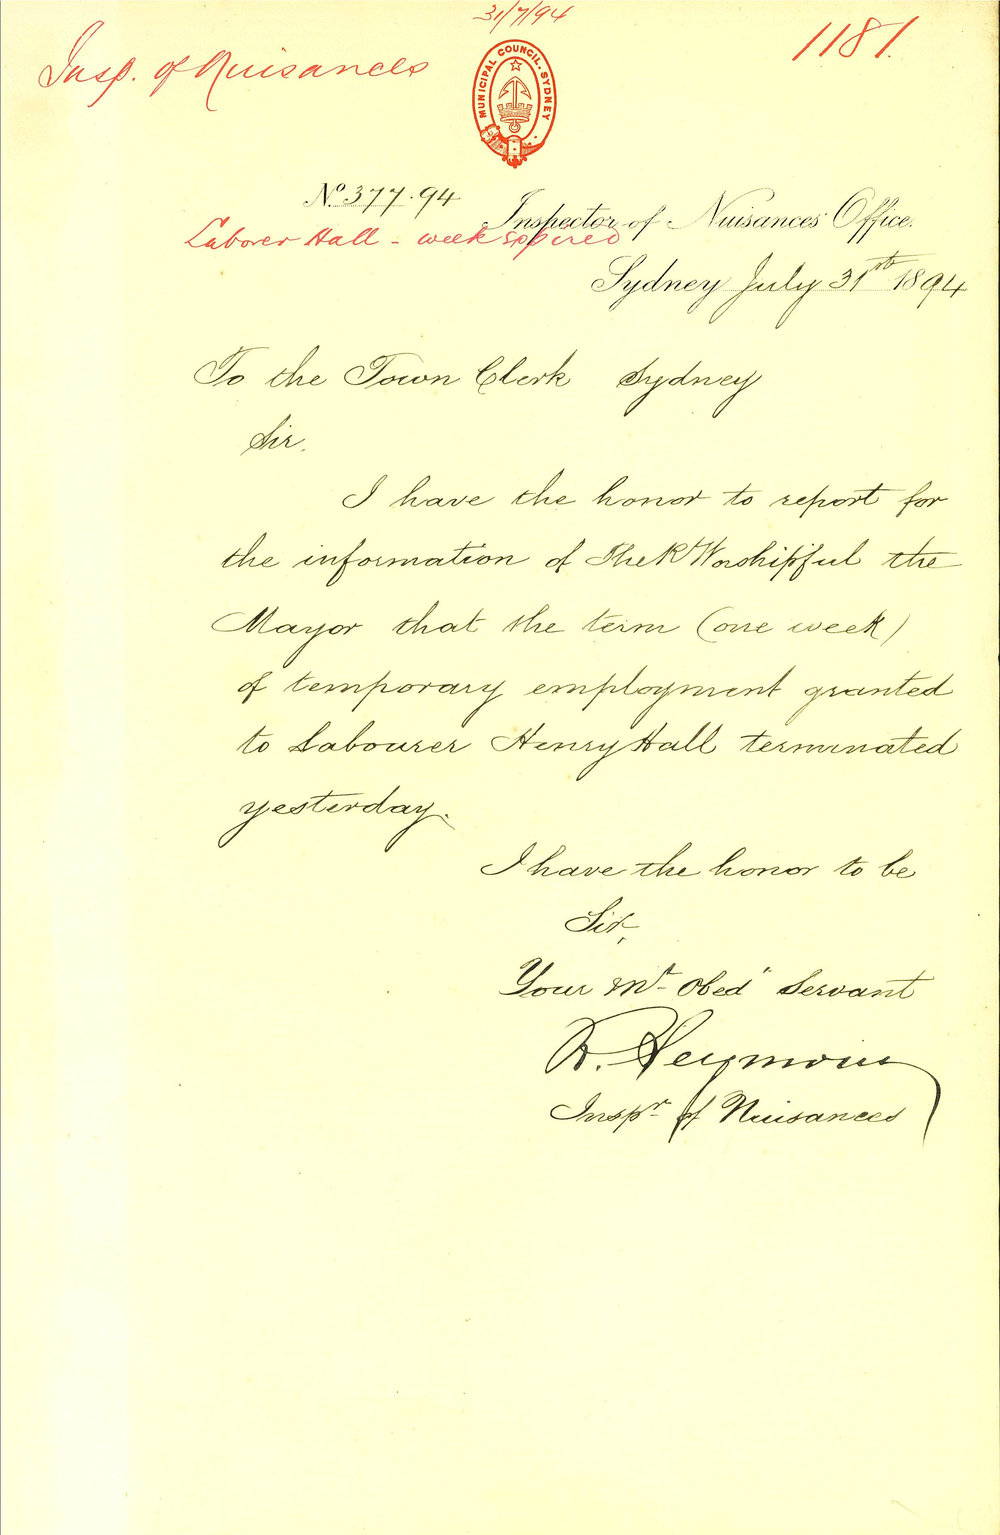 31/7/94
Insp. of Nuisances
1181.
MUNICIPAL COUNCIL. SYDNEY
No. 377.94
Inspector of Nuisances' Office.
Laborer Hall - week expired
Sydney July 31st 1894
To the Town Clerk Sydney
Sir.
I have the honor to report for
the information of The R Worshipful the
Mayor that the term (one week)
of temporary employment granted
to Labourer Henry Hall terminated
yesterday.
I have the honor to be
Sir,
Your Mt Obed" Servant
R. Seymour
Inspr of Nuisances